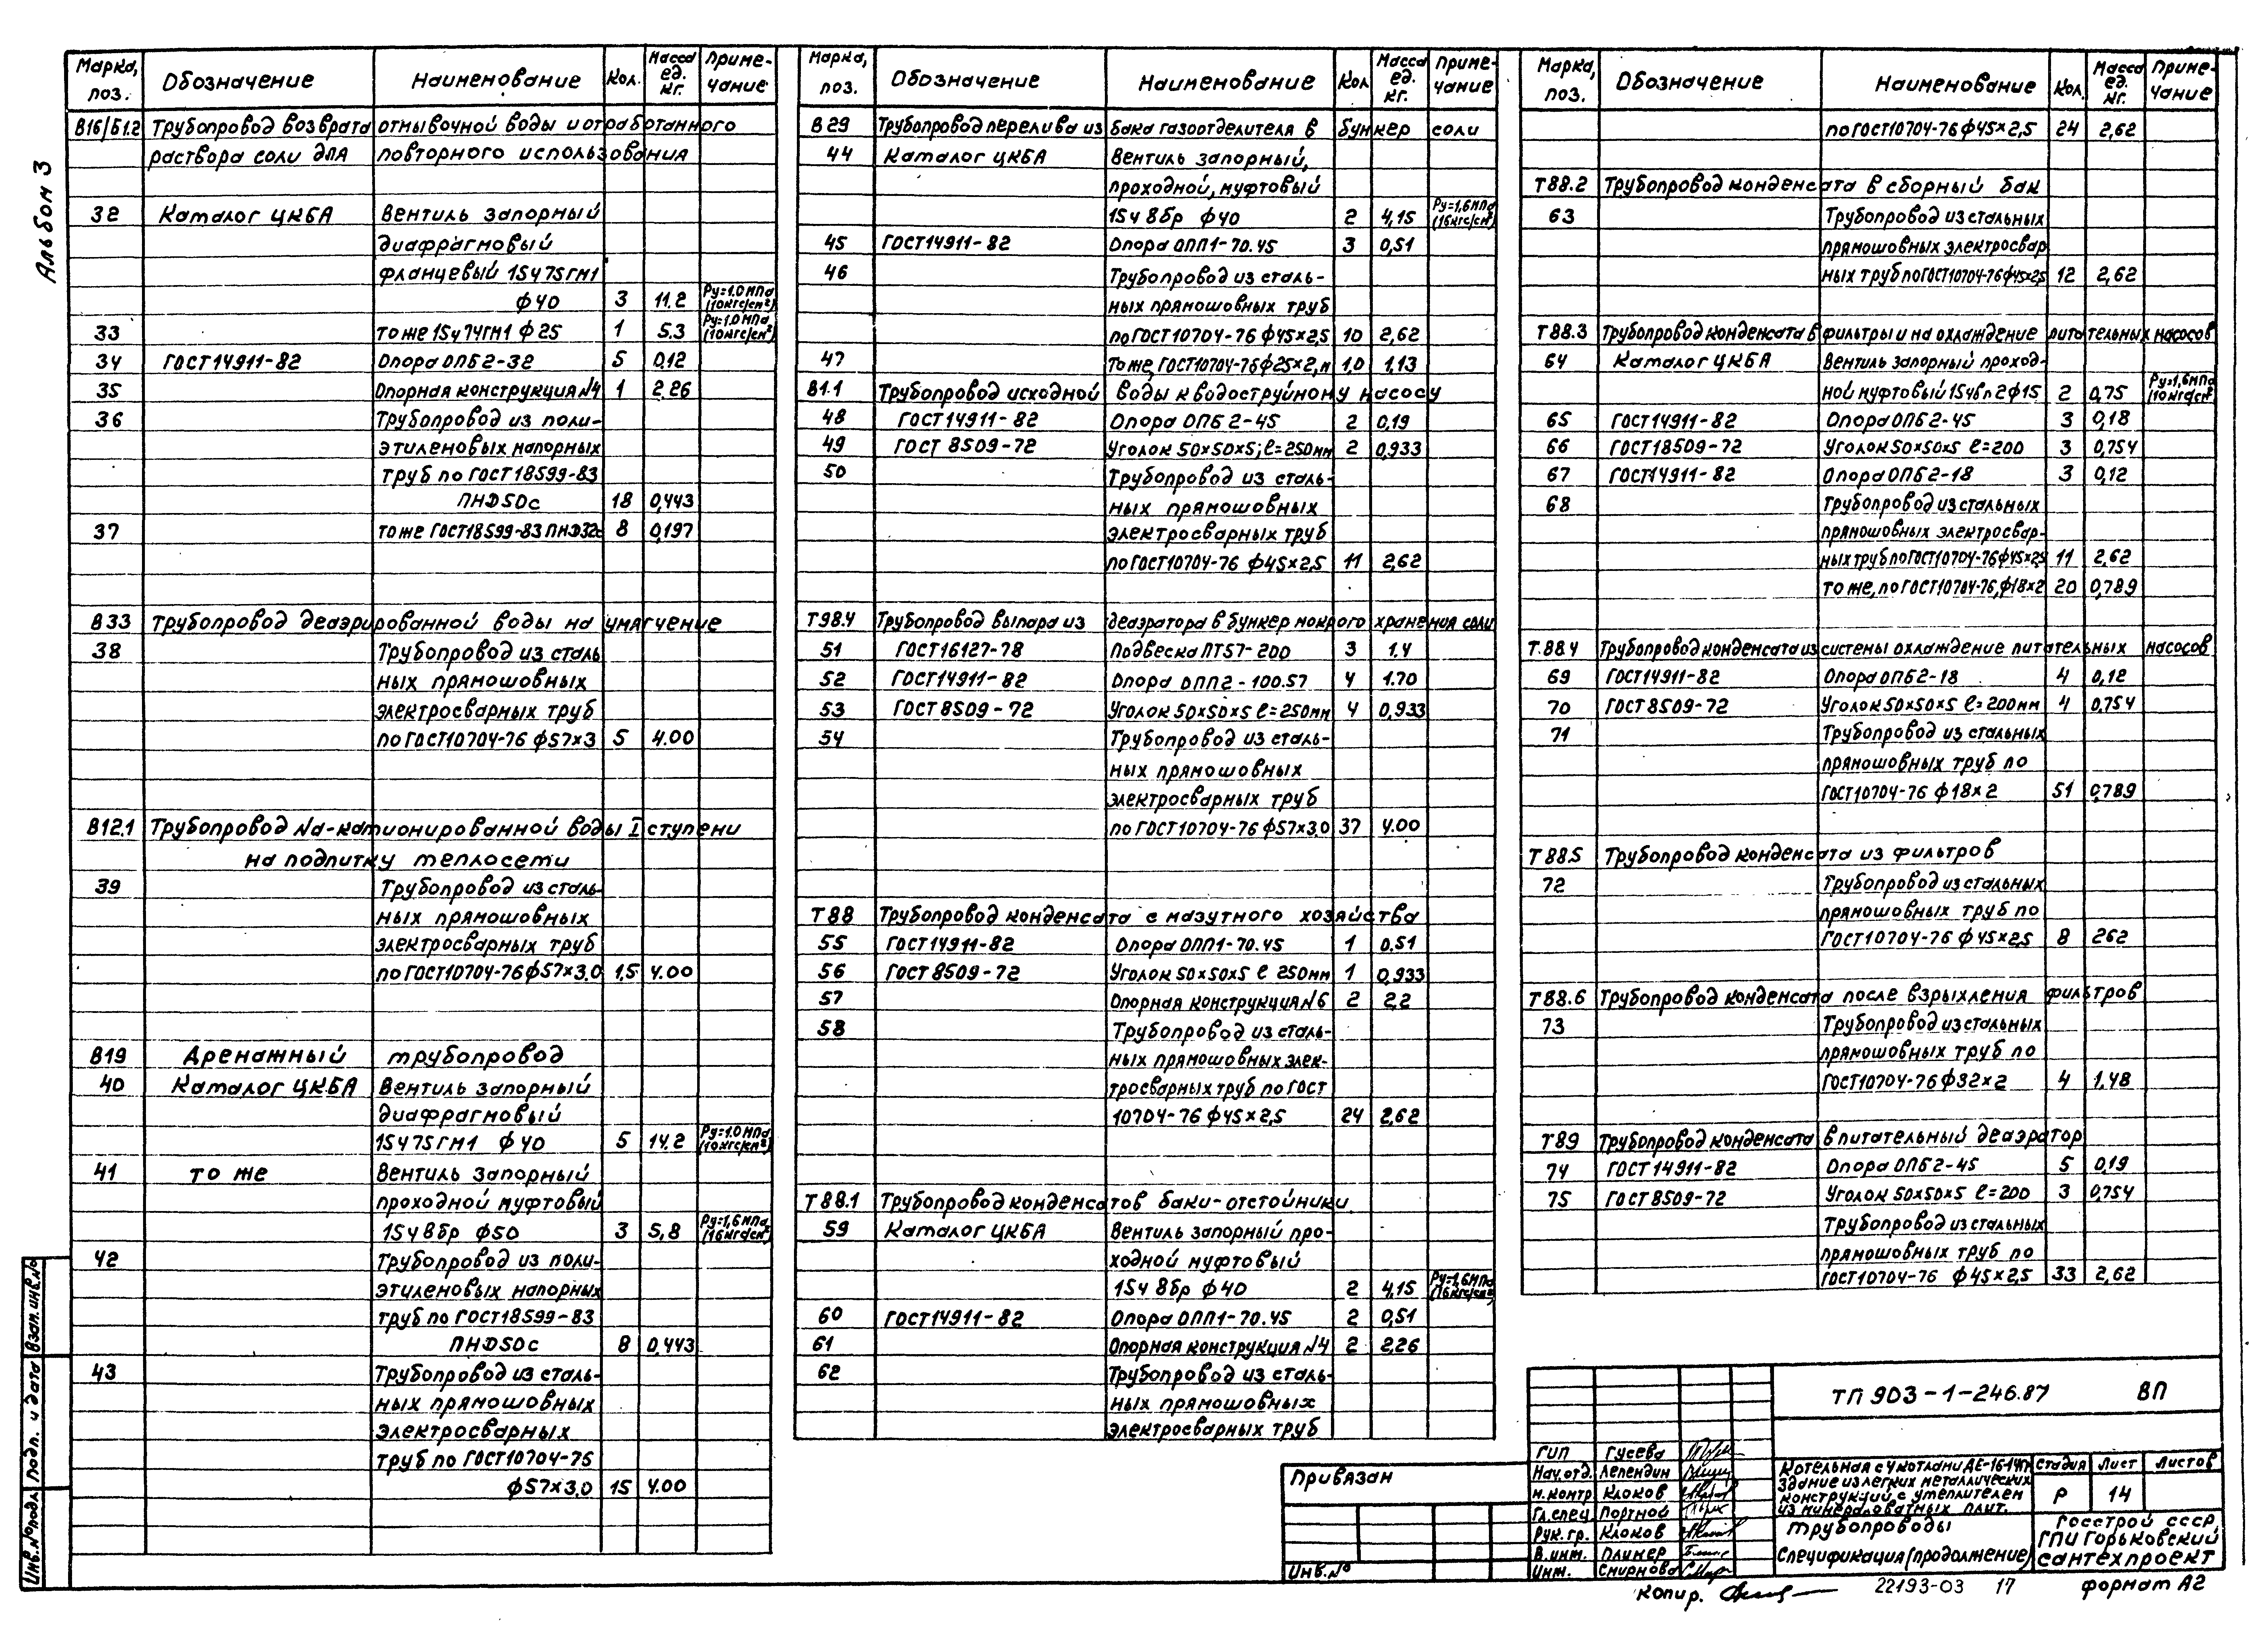 Альбом 3
Марка, поз. Обозначение Наименование Кол. Масса ед. кг. Примечание
В16/Б1.2 Трубопровод возврата отмывочной воды и отработанного
раствора соли для повторного использования
32 Каталог ЦКБА Вентиль запорный
диафрагмовый
фланцевый 15ч75ГМ1
ф40 3 11.2 Ру=1.0 МПа (10кгс/см²)
33 то же 15ч74ГМ1 ф25 1 5.3 Ру=1.0 МПа (10кгс/см²)
34 ГОСТ14911-82 Опора ОПБ2-32 5 0.12
35 Опорная конструкция N4 1 2.26
36 Трубопровод из поли-
этиленовых напорных
труб по ГОСТ18599-83
ПНД50с 18 0,443
37 то же ГОСТ18599-83 ПНД32с 8 0,197
В33 Трубопровод деаэрированной воды на умягчение
38 Трубопровод из сталь
ных прямошовных
электросварных труб
по ГОСТ10704-76 ф57×3 5 4.00
В12.1 Трубопровод Na-катионированной воды I ступени
на подпитку теплосети
39 Трубопровод из сталь-
ных прямошовных
электросварных труб
по ГОСТ10704-76 ф57×3.0 1,5 4.00
В19 Дренажный трубопровод
40 Каталог ЦКБА Вентиль запорный
диафрагмовый
15ч75ГМ1 ф40 5 14.2 Ру=1.0 МПа (10кгс/см²)
41 то же Вентиль запорный
проходной муфтовый
15ч8бр ф50 3 5,8 Ру=1,6МПа (16кгс/см²)
42 Трубопровод из поли-
этиленовых напорных
труб по ГОСТ18599-83
ПНД50с 8 0,443
43 Трубопровод из сталь-
ных прямошовных
электросварных
труб по ГОСТ10704-76
ф57×3,0 15 4.00
Марка, поз. Обозначение Наименование Кол Масса ед. кг. Примечание
В29 Трубопровод перелива из бака газоотделителя в бункер соли
44 Каталог ЦКБА Вентиль запорный,
проходной, муфтовый
15ч8бр ф40 2 4,15 Ру=1,6МПа (16кгс/см²)
45 ГОСТ14911-82 Опора ОПП1-70.45 3 0,51
46 Трубопровод из сталь-
ных прямошовных труб
по ГОСТ10704-76 ф45×2,5 10 2,62
47 То же, ГОСТ10704-76 ф25×2, м 1,0 1,13
В1.1 Трубопровод исходной воды к водоструйному насосу
48 ГОСТ14911-82 Опора ОПБ2-45 2 0,19
49 ГОСТ 8509-72 Уголок 50×50×5; ℓ=250мм 2 0,933
50 Трубопровод из сталь-
ных прямошовных
электросварных труб
по ГОСТ10704-76 ф45×2,5 11 2,62
Т98.4 Трубопровод выпара из деаэратора в бункер мокрого хранения соли
51 ГОСТ16127-78 Подвеска ПТ57-200 3 1.4
52 ГОСТ14911-82 Опора ОПП2-100.57 4 1.70
53 ГОСТ8509-72 Уголок 50×50×5 ℓ=250мм 4 0,933
54 Трубопровод из сталь-
ных прямошовных
электросварных труб
по ГОСТ10704-76 ф57×3.0 37 4.00
Т88 Трубопровод конденсата с мазутного хозяйства
55 ГОСТ14911-82 Опора ОПП1-70.45 1 0,51
56 ГОСТ8509-72 Уголок 50×50×5 ℓ 250мм 1 0,933
57 Опорная конструкция N6 2 2.2
58 Трубопровод из сталь-
ных прямошовных элек-
тросварных труб по ГОСТ
10704-76 ф45×2,5 24 2,62
Т88.1 Трубопровод конденсатов баки-отстойники
59 Каталог ЦКБА Вентиль запорный про-
ходной муфтовый
15ч 8бр ф40 2 4,15 Ру=1,6МПа (16кгс/см²)
60 ГОСТ14911-82 Опора ОПП1-70.45 2 0,51
61 Опорная конструкция N4 2 2.26
62 Трубопровод из сталь-
ных прямошовных
электросварных труб
Марка, поз. Обозначение Наименование Кол. Масса ед. кг. Примечание
по ГОСТ10704-76 ф45×2,5 24 2,62
Т88.2 Трубопровод конденсата в сборный бак
63 Трубопровод из стальных
прямошовных электросвар
ных труб по ГОСТ10704-76 ф45×2,5 12 2,62
Т88.3 Трубопровод конденсата в фильтры и на охлаждение питательных насосов
64 Каталог ЦКБА Вентиль запорный проход-
ной муфтовый 15ч8п2 ф15 2 0,75 Ру=1,6МПа (10кгс/см²)
65 ГОСТ14911-82 Опора ОПБ2-45 3 0,18
66 ГОСТ18509-72 Уголок 50×50×5 ℓ=200 3 0,754
67 ГОСТ14911-82 Опора ОПБ2-18 3 0,12
68 Трубопровод из стальных
прямошовных электросвар-
ных труб по ГОСТ10704-76 ф45×2,5 11 2,62
то же, по ГОСТ10704-76, ф18×2 20 0,789
Т.88.4 Трубопровод конденсата из системы охлаждение питательных насосов
69 ГОСТ14911-82 Опора ОПБ2-18 4 0,12
70 ГОСТ8509-72 Уголок 50×50×5 ℓ=200мм 4 0,754
71 Трубопровод из стальных
прямошовных труб по
ГОСТ10704-76 ф18×2 51 0,789
Т88.5 Трубопровод конденсата из фильтров
72 Трубопровод из стальных
прямошовных труб по
ГОСТ10704-76 ф45×2,5 8 262
Т88.6 Трубопровод конденсата после взрыхления фильтров
73 Трубопровод из стальных
прямошовных труб по
ГОСТ10704-76 ф32×2 4 1,48
Т89 Трубопровод конденсата в питательный деаэратор
74 ГОСТ 14911-82 Опора ОПБ2-45 5 0,19
75 ГОСТ8509-72 Уголок 50×50×5 ℓ=200 3 0,754
Трубопровод из стальных
прямошовных труб по
ГОСТ10704-76 ф45×2,5 33 2,62
Инв.№ подл. Подп. и дата Взам.инв.№
Привязан
Инв.№
ТП 903-1-246.87 ВП
ГИП Гусева
Нач.отд. Лепендин
Н.контр Клоков
Гл.спец Портной
Рук.гр. Клоков
В.инж. Плинер
Инж. Смирнова
Котельная с 4 котлами ДЕ-16-14ГМ
Здание из легких металлических
конструкций с утеплителем
из минераловатных плит.
Стадия Лист Листов
Р 14
Трубопроводы
Спецификация (продолжение)
Госстрой СССР
ГПИ Горьковский
Сантехпроект
Копир. 22193-03 17 формат А2